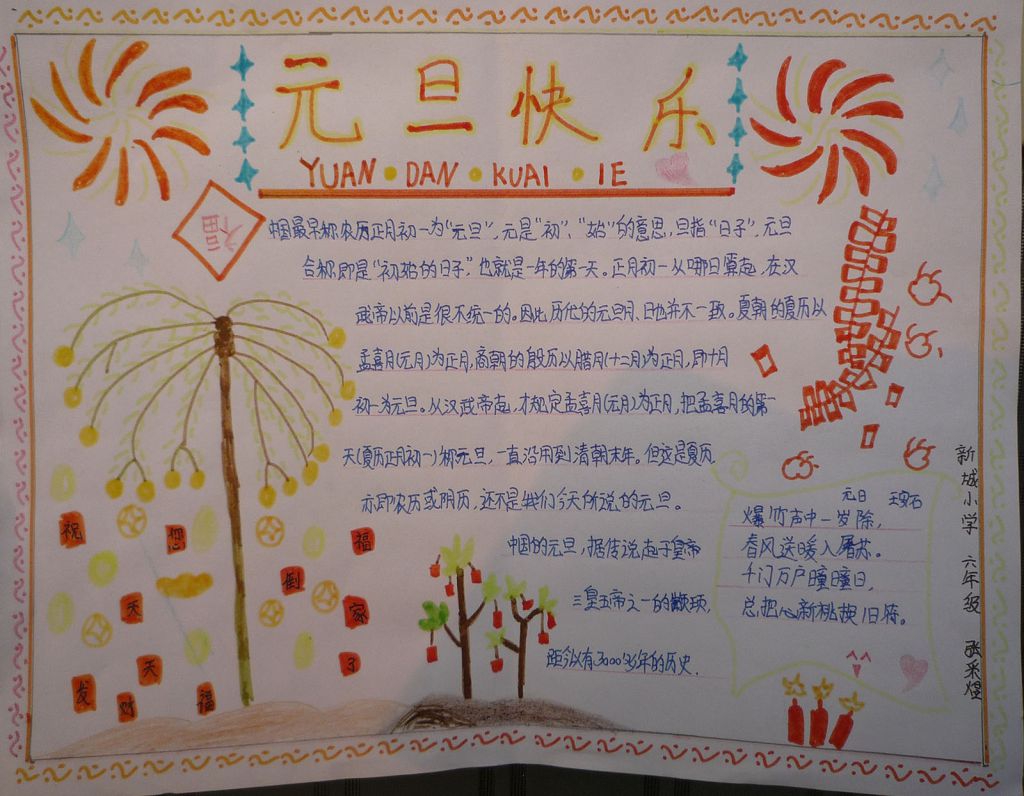 元旦快乐
YUAN·DAN·KUAI·IE
福
中国最早称农历正月初一为“元旦”,元是“初”、“始”的意思,旦指“日子”,元旦
合称即是“初始的日子”,也就是一年的第一天。正月初一从哪日算起,在汉
武帝以前是很不统一的。因此历代的元旦月、日也并不一致。夏朝的夏历以
孟喜月(元月)为正月,商朝的殷历以腊月(十二月)为正月,即十月
初一为元旦。从汉武帝起,才规定孟喜月(元月)为正月,把孟喜月的第一
天(夏历正月初一)称元旦,一直沿用到清朝末年。但这是夏历,
亦即农历或阴历,还不是我们今天所说的元旦。
中国的元旦,据传说起于皇帝
三皇五帝之一的颛顼,
距今以有3000多年的历史.
元日 王安石
爆竹声中一岁除,
春风送暖入屠苏。
千门万户瞳瞳日,
总把心新桃换旧符。
新城小学 六年级
祝 您 福
天 倒 家
天 了
发 财 福